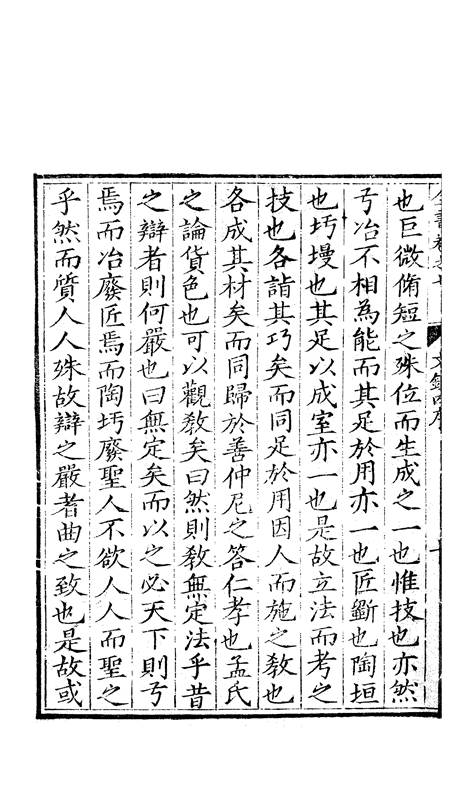 也巨微脩短之殊位而生成之一也惟技也亦然
弓冶不相為能而其足於用亦一也匠斲也陶垣
也圬墁也其足以成室亦一也是故立法而考之
技也各詣其巧矣而同足於用因人而施之敎也
各成其材矣而同歸於善仲尼之答仁孝也孟氏
之論貨色也可以觀敎矣曰然則敎無定法乎昔
之辯者則何嚴也曰無定矣而以之必天下則弓
焉而冶廢匠焉而陶圬廢聖人不欲人人而聖之
乎然而質人人殊故辯之嚴者曲之致也是故或